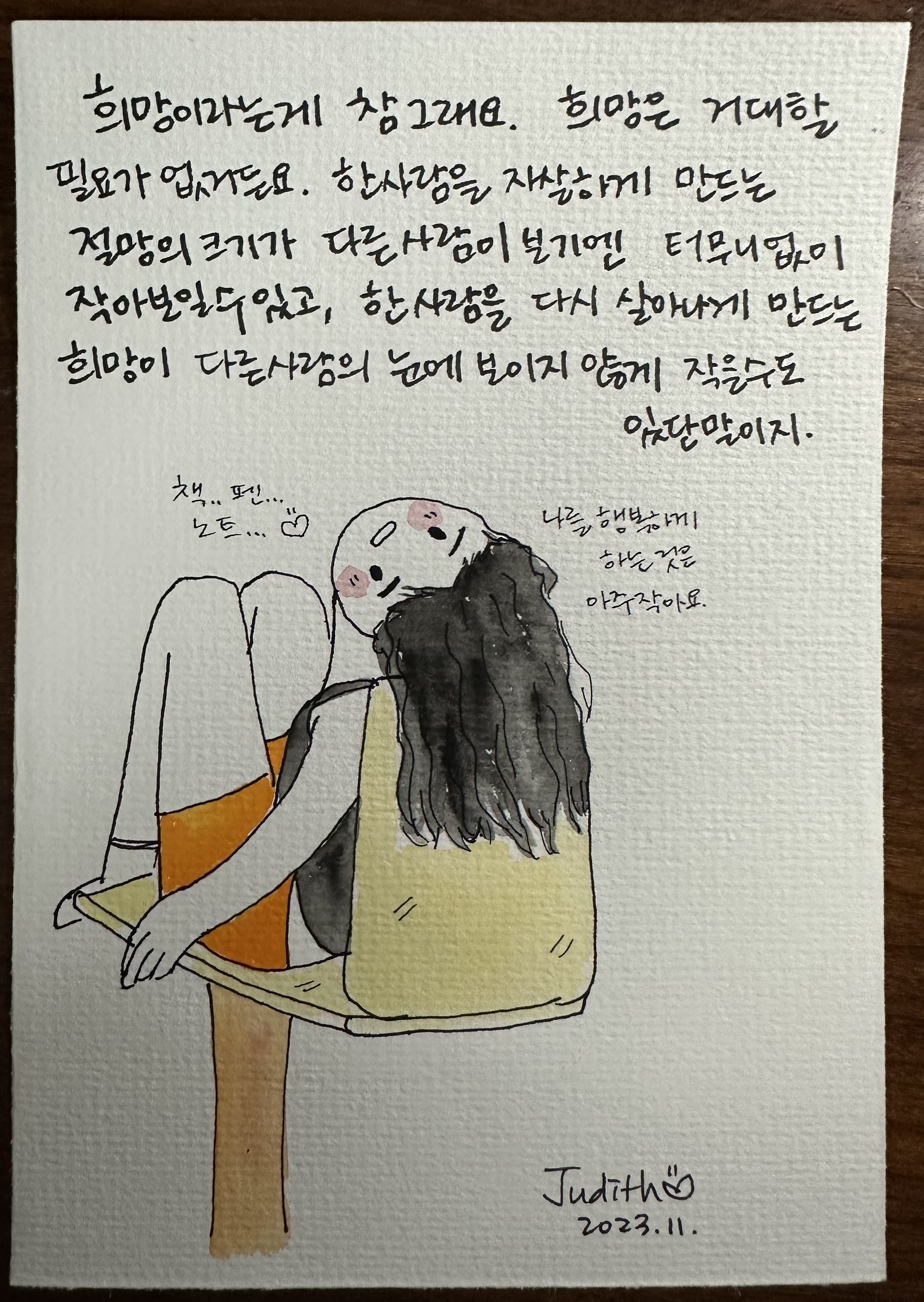 희망이라는게 참 그래요. 희망은 거대할
필요가 없거든요. 한사람을 자살하게 만드는
절망의 크기가 다른사람이 보기엔 터무니없이
작아보일수있고, 한사람을 다시 살아나게 만드는
희망이 다른사람의 눈에 보이지 않게 작을수도
있단말이지.
책.. 펜...
노트...
나를 행복하게
하는 것은
아주작아요.
Judith
2023.11.